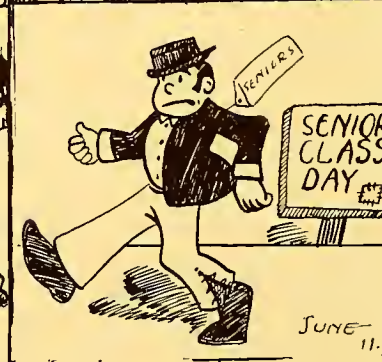 SENIORS
SENIOR
CLASS
DAY
JUNE-
11.